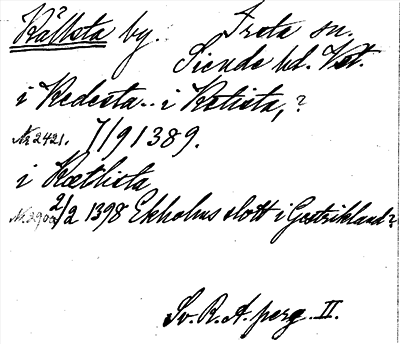 Kållsta by. Irsta sn.
Siende hd. Vst.
i Kedesta.. i Ketista,?
Nr 2421. 7/9 1389.
i Kætlista
Nr. 2900 2/2 1398 Ekholms slott i Gestrikland?
Sv. R. A. perg. II.